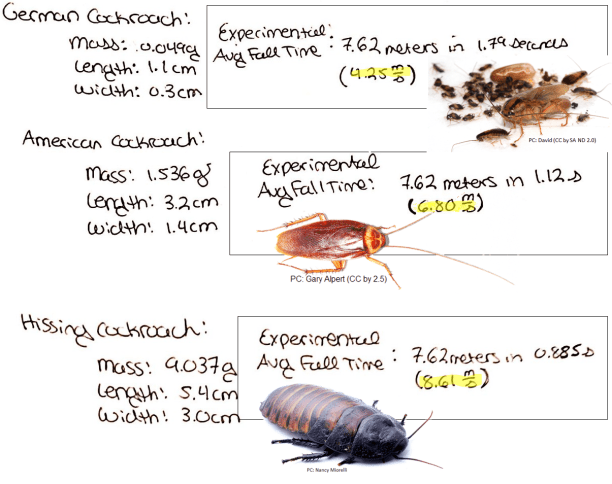 German Cockroach:
Mass: .049g
Length: 1.1cm
Width: 0.3cm
Experimental:
Avg Fall Time: 7.62 meters in 1.79 seconds
(4.25 m/s)
PC: David (CC by SA ND 2.0)
American Cockroach:
Mass: 1.536g
Length: 3.2cm
Width: 1.4cm
Experimental
Avg Fall Time: 7.62 meters in 1.12s
(6.80 m/s)
PC: Gary Alpert (CC by 2.5)
Hissing Cockroach:
Mass: 9.037g
Length: 5.4cm
Width: 3.0cm
Experimental
Avg Fall Time: 7.62 meters in 0.885s
(8.61 m/s)
PC: Nancy Miorelli